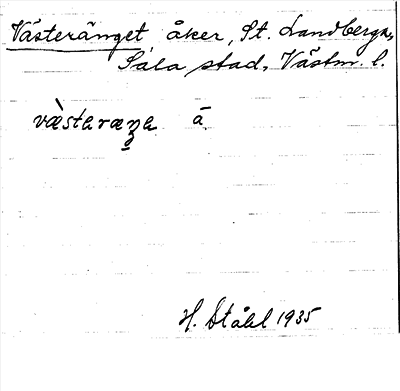 Västeränget åker, St. Sandberga,
Sala stad, Västm. l.
ā
H. Ståhl 1935